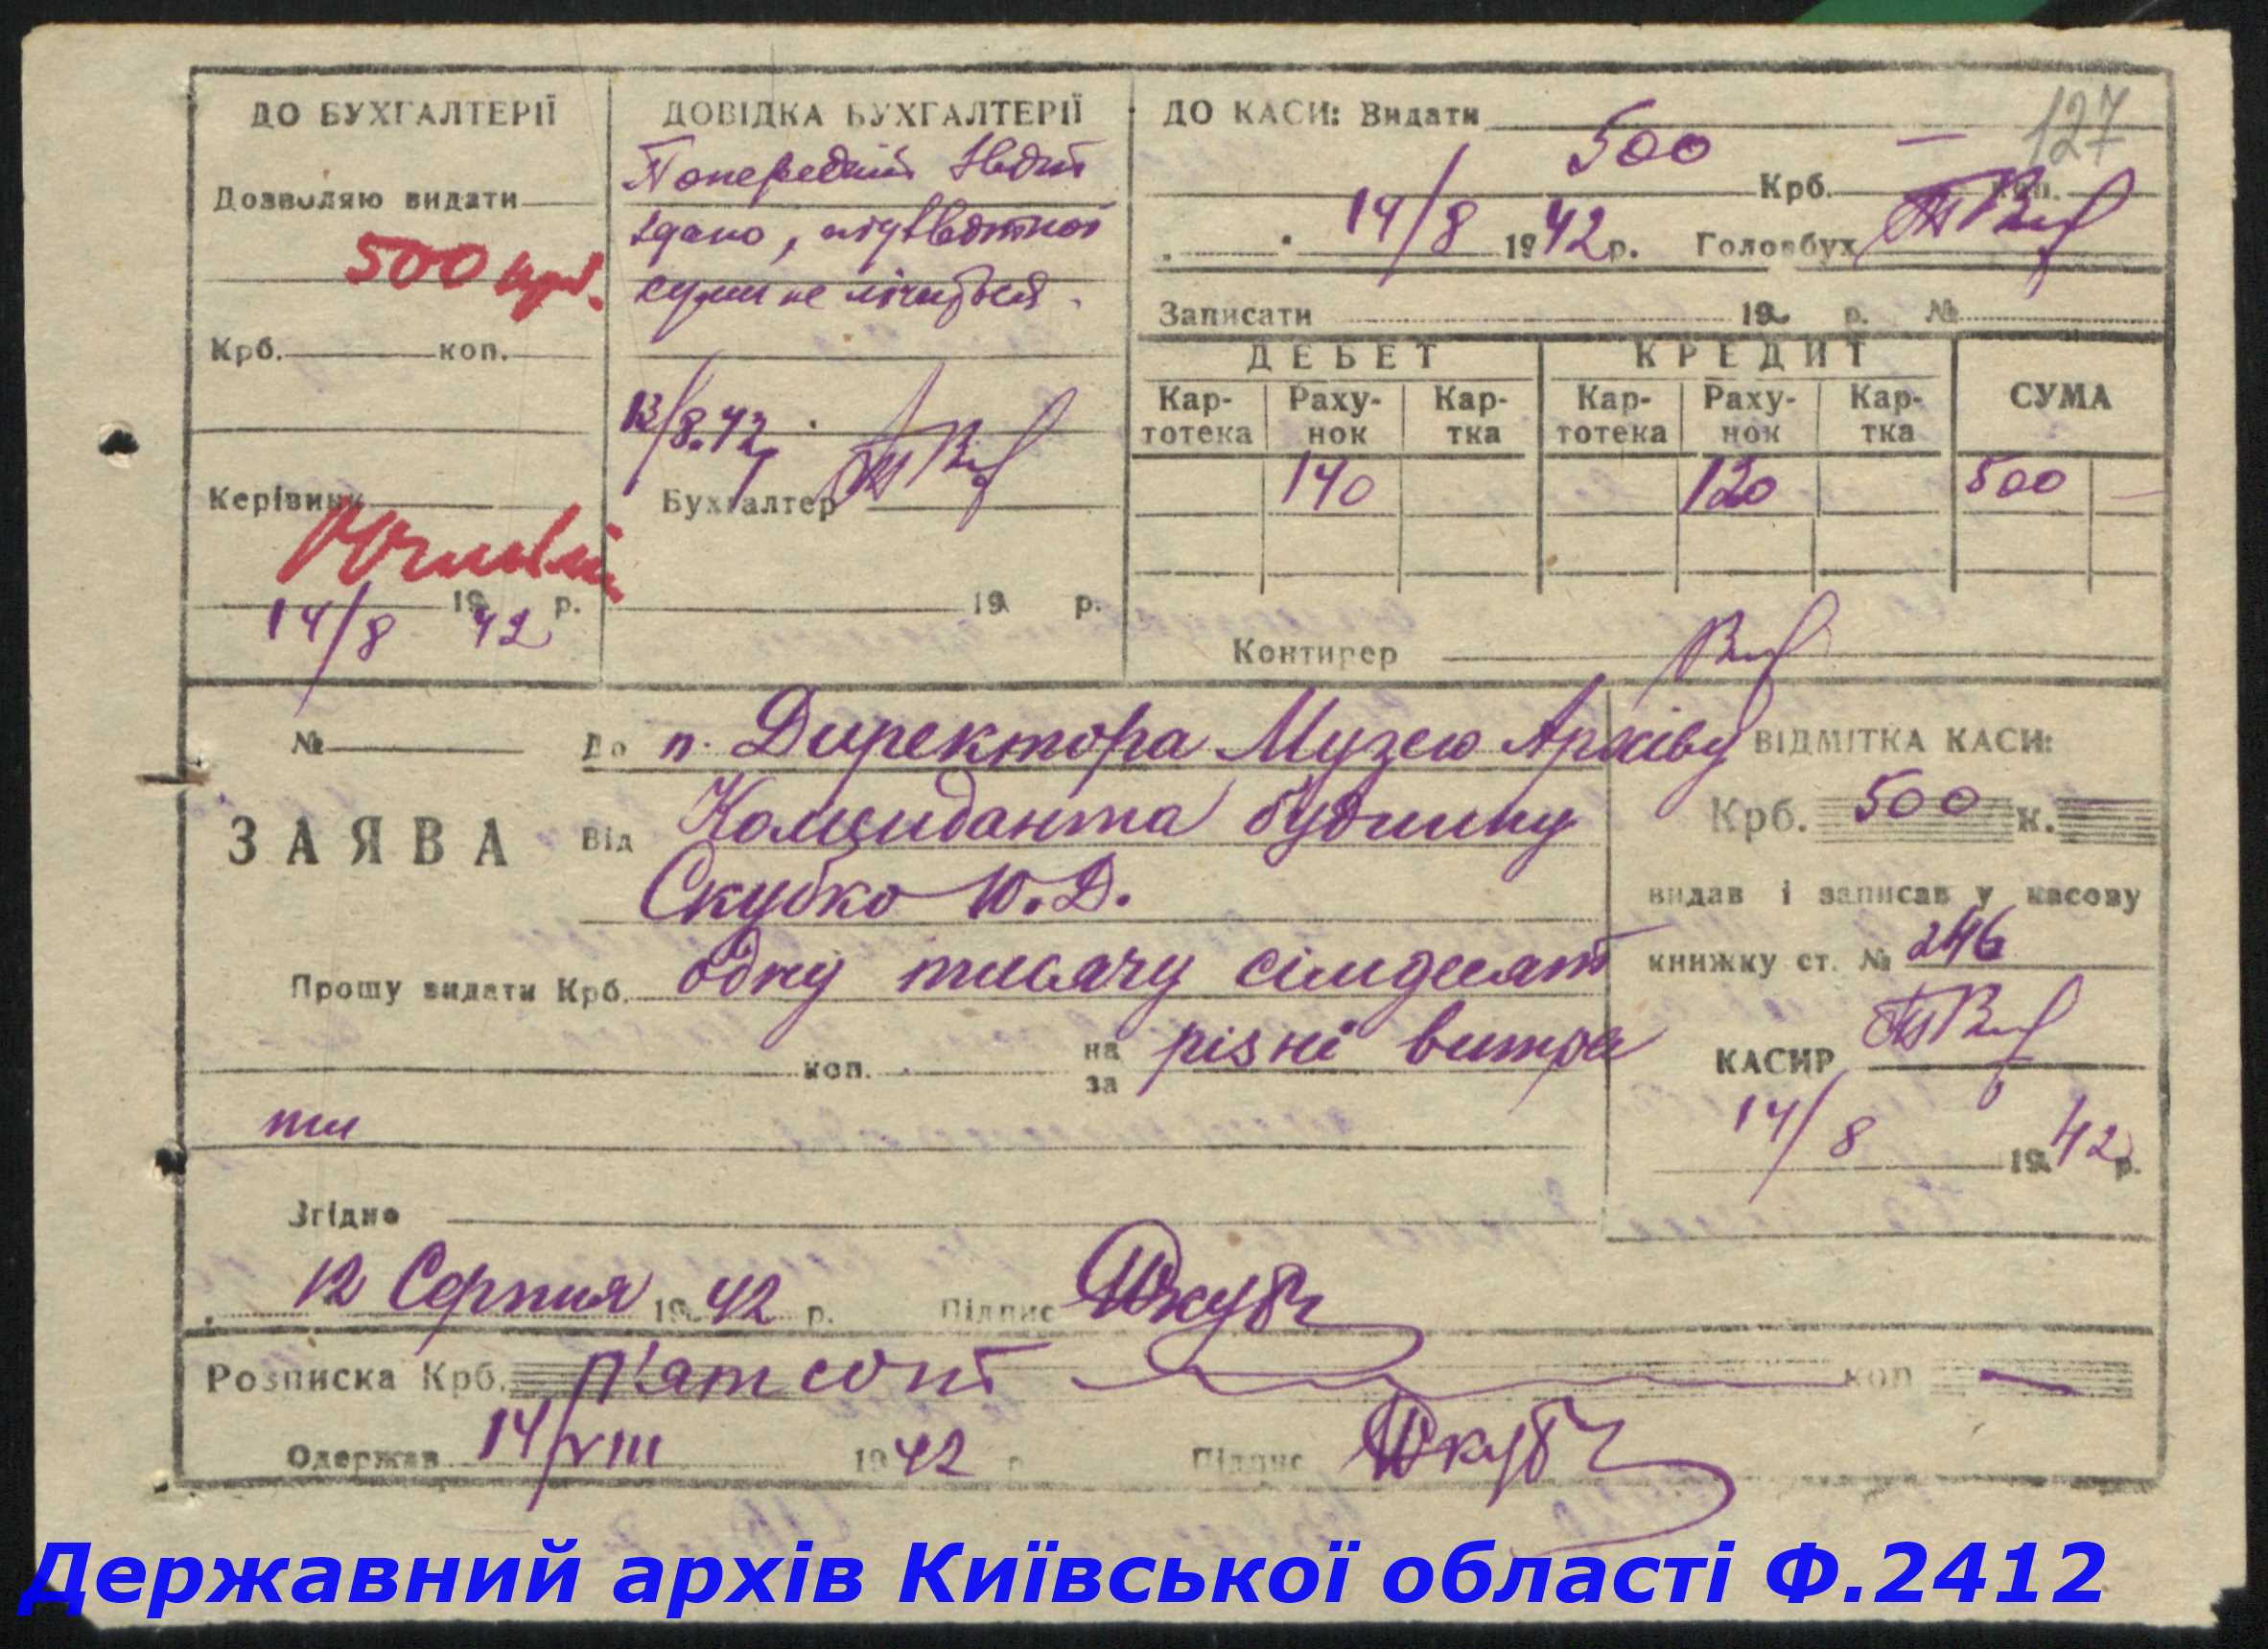 127
ДО БУХГАЛТЕРІЇ
Дозволяю видати
500 крб.
Крб. коп.
Керівник
14/8 1942 р.
ДОВІДКА БУХГАЛТЕРІЇ
Попередній звіт
здано, підзвітної
суми не лічиться.
13/8.42
Бухгалтер
19 р.
ДО КАСИ: Видати
500 Крб. — коп.
14/8 1942 р. Головбух
Записати 19 р. №
ДЕБЕТ КРЕДИТ СУМА
Кар-тотека Раху-нок Кар-тка Кар-тотека Раху-нок Кар-тка
140 120 500 —
Контирер
№ До п. Директора Музею Архіву
ЗАЯВА Від Коменданта будинку
Скубко Ю.Д.
Прошу видати Крб. одну тисячу сімдесят
коп. на за різні витра
ти
Згідно
12 Серпня 1942 р. Підпис
ВІДМІТКА КАСИ:
Крб. 500 к.
видав і записав у касову
книжку ст. № 246
КАСИР
14/8 1942 р.
Розписка Крб. п'ятсот коп —
Одержав 14/VIII 1942 р Підпис
Державний архів Київської області Ф.2412